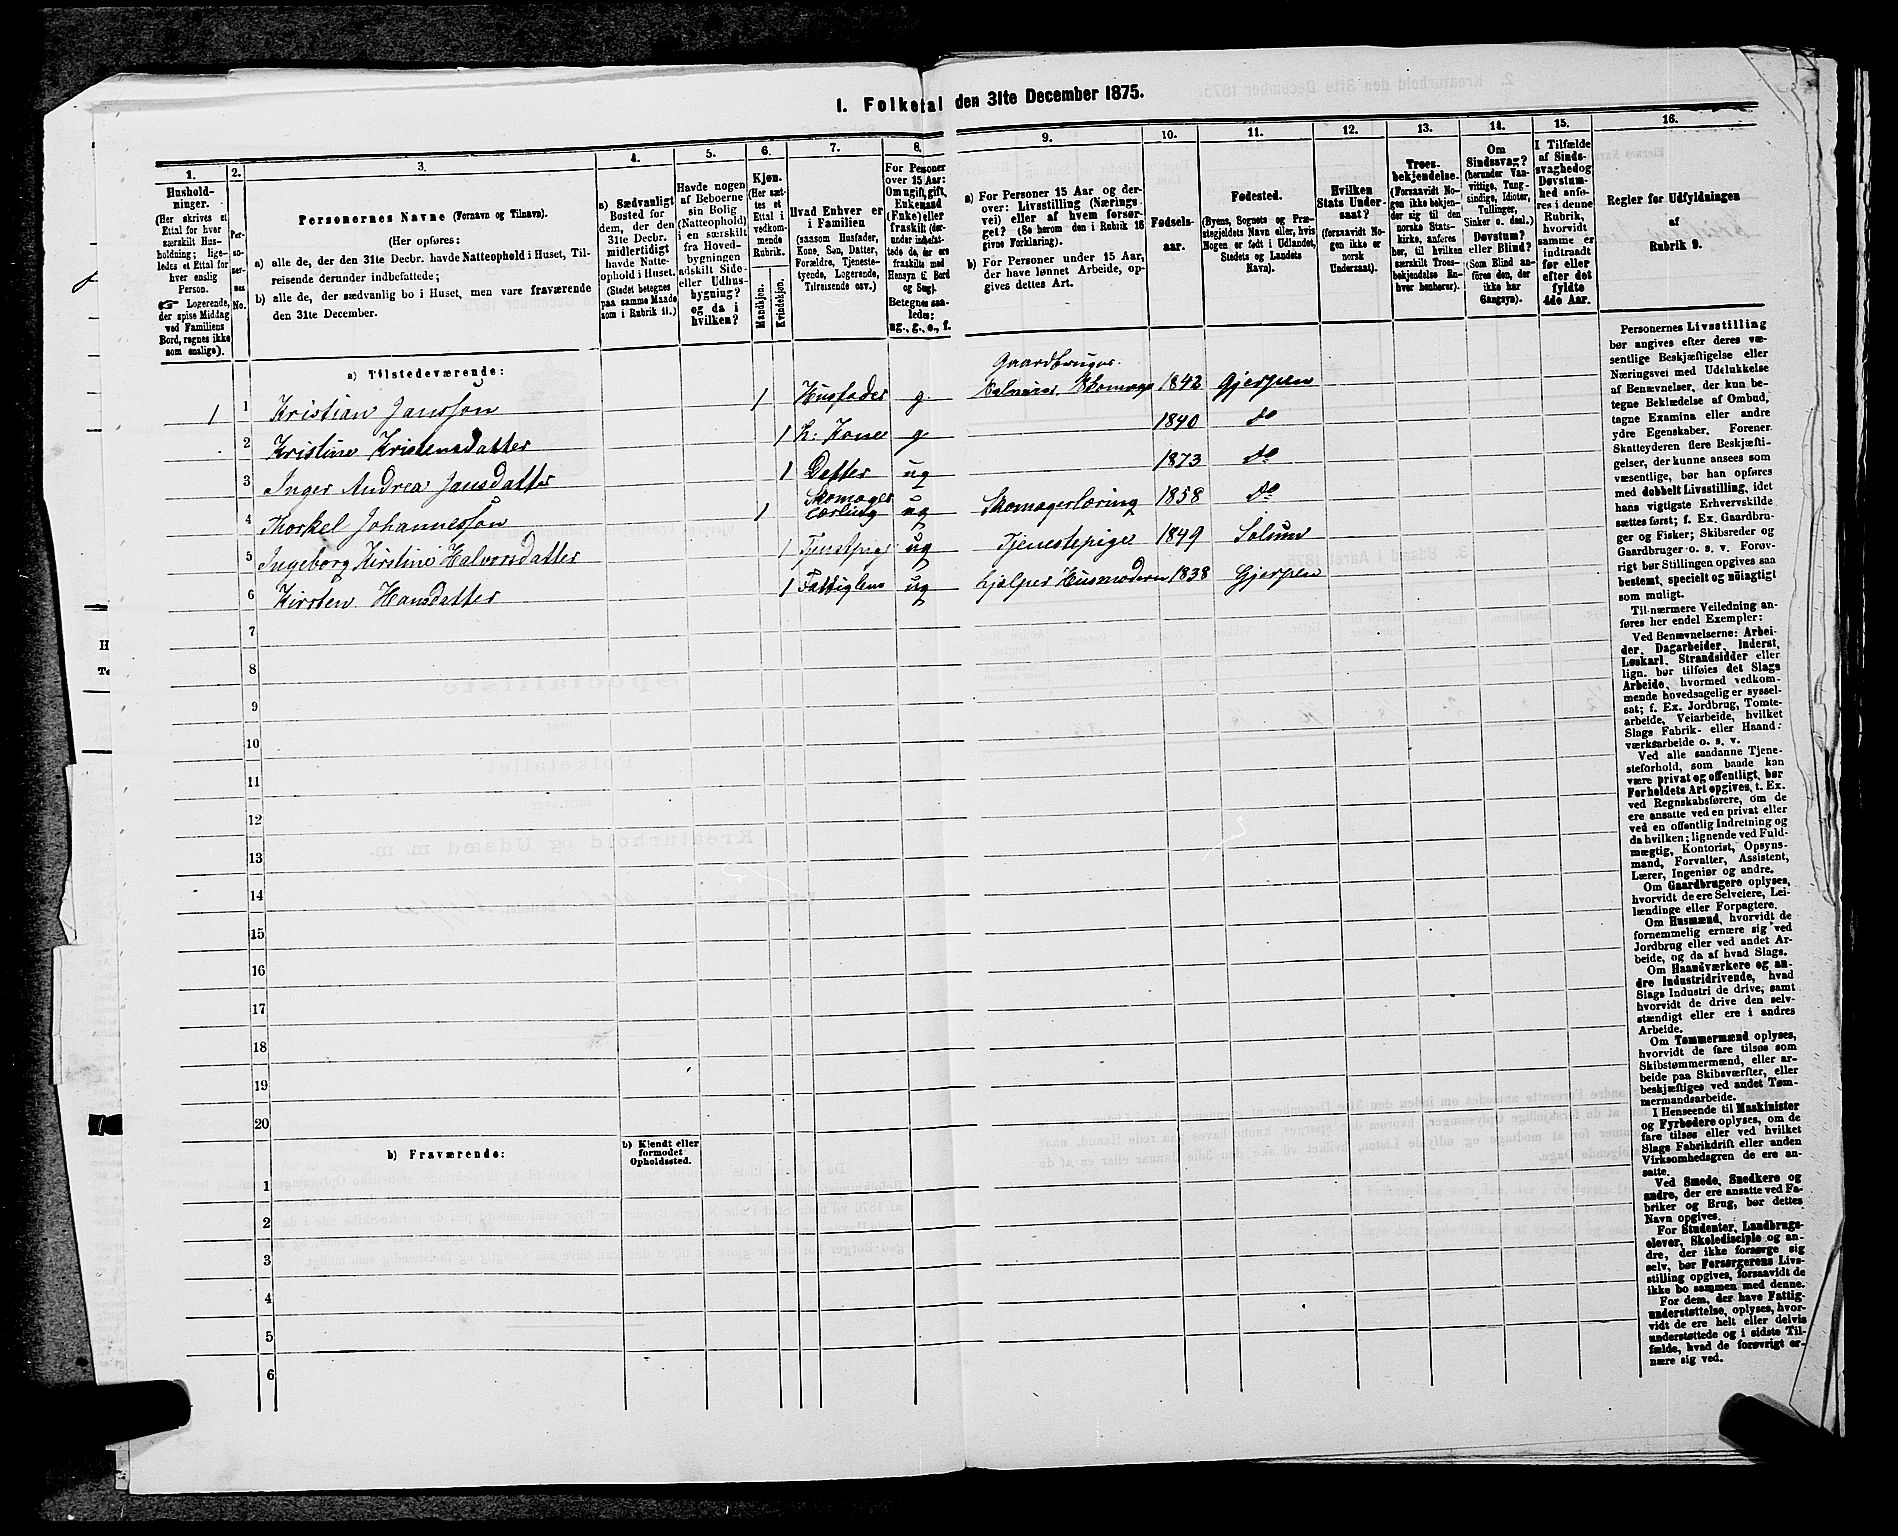 1. Folketal den 31te December 1875.
1. 2. 3. 4. 5. 6. 7. 8. 9. 10. 11. 12. 13. 14. 15. 16.
Hushold-
ninger.
(Her skrives et
Ettal for hver
særskilt Hus-
holdning; lige-
ledes et Ettal for
hver enslig
Person.
☞ Logerende,
der spise Middag
ved Familiens
Bord, regnes ikke
som enslige).
Per-
so-
ner-
nes
No.
Personernes Navne (Fornavn og Tilnavn).
(Her opføres:
a) alle de, der den 31te Decbr. havde Natteophold i Huset, Til-
reisende derunder indbefattede;
b) alle de, der sædvanlig bo i Huset, men vare fraværende
den 31te December.
a) Sædvanligt
Bosted for
dem, der den
31te Decbr.
midlertidigt
havde Natte-
ophold i Huset.
(Stedet betegnes
paa samme Maade
som i Rubrik 11.)
Havde nogen
af Beboerne
sin Bolig
(Natteophold)
i en særskilt
fra Hoved-
bygningen
adskilt Side-
eller Udhus-
bygning?
og da i
hvilken?
Kjøn.
(Her sæt-
tes et
Ettal i
vedkom-
mende
Rubrik.
Mandkjøn.
Kvindekjøn.
Hvad Enhver er
i Familien
(saasom Husfader,
Kone, Søn, Datter,
Forældre, Tjeneste-
tyende, Logerende,
Tilreisende osv.)
For Personer
over 15 Aar:
Om ugift, gift,
Enkemand
(Enke) eller
fraskilt (der-
under indbefat-
tede de, der ere
fraskilte med
Hensyn til Bord
og Seng).
Betegnes saa-
ledes:
ug., g., e., f.
a) For Personer 15 Aar og der-
over: Livsstilling (Nærings-
vei) eller af hvem forsør-
get? (Se herom den i Rubrik 16
givne Forklaring).
b) For Personer under 15 Aar,
der have lønnet Arbeide, op-
gives dettes Art.
Fødsels-
aar.
Fødested.
(Byens, Sognets og Præ-
stegjeldets Navn eller, hvis
Nogen er født i Udlandet,
Stedets og Landets
Navn).
Hvilken
Stats Under-
saat?
(forsaavidt No-
gen ikke er
norsk
Undersaat).
Troes-
bekjendelse.
(Forsaavidt No-
gen ikke bekjen-
der sig til den
norske Stats-
kirke, anføres
her, til hvilken
særskilt Troes-
bekjendelse En-
hver henhører).
Om
Sindssvag?
(herunder Van-
vittige, Tung-
sindige, Idioter,
Tullinger,
Sinker o. desl.)
Døvstum?
eller Blind?
(Som Blind an-
føres den, der
ikke har
Gangsyn).
I Tilfælde
af Sinds-
svaghed og
Døvstum-
hed anfø-
res i denne
Rubrik,
hvorvidt
samme er
indtraadt
før eller
efter det
fyldte
4de Aar.
Regler for Udfyldningen
af
Rubrik 9.
a) Tilstedeværende:
Gaardbruger
1 1 Kristian Jansson 1 Husfader g. Selveier, Skomager 1842 Gjerpen
2 Kristine Kristensdatter 1 h. Kone g 1840 do
3 Inger Andrea Jansdatter 1 Datter ug 1873 do
4 Thorkel Johannesson 1 Skomager Lærling ug Skomagerlæring 1858 Do
5 Ingeborg Kirstine Halvorsdatter 1 Tjenstpige ug Tjenestepige 1849 Solum
6 Kirsten Hansdatter 1 Fattiglem ug hjelper Husmoderen 1838 Gjerpen
7
8
9
10
11
12
13
14
15
16
17
18
19
20
b) Fraværende:
b) Kjendt eller
formodet
Opholdssted.
1
2
3
4
5
6
Personernes Livsstilling
bør angives efter deres væ-
sentlige Beskjæftigelse eller
Næringsvei med Udelukkelse
af Benævnelser, der kun be-
tegne Beklædelse af Ombud,
tagne Examina eller andre
ydre Egenskaber. Forener
Skatteyderen flere Beskjæfti-
gelser, der kunne ansees som
væsentlige, bør han opføres
med dobbelt Livsstilling, idet
hans vigtigste Erhvervskilde
sættes først; f. Ex. Gaardbru-
ger og Fisker; Skibsreder og
Gaardbruger o. s. v. Forøv-
rigt bør Stillingen opgives saa
bestemt, specielt og nøiagtigt
som muligt.
Til nærmere Veiledning an-
føres her endel Exempler:
Ved Benævnelserne: Arbei-
der, Dagarbeider, Inderst,
Løskarl, Strandsidder eller
lign. bør tilføies det Slags
Arbeide, hvormed vedkom-
mende hovedsagelig er syssel-
sat; f. Ex. Jordbrug, Tomte-
arbeide, Veiarbeide, hvilket
Slags Fabrik- eller Haand-
værksarbeide o. s. v.
Ved alle saadanne Tjene-
steforhold, som baade kan
være privat og offentligt, bør
Forholdets Art opgives, t. Ex.
ved Regnskabsførere, om de
ere ansatte ved en privat eller
ved en offentlig Indretning og
da hvilken; lignende ved Fuld-
mægtig, Kontorist, Opsyns-
mand, Forvalter, Assistent,
Lærer, Ingeniør og andre.
Om Gaardbrugere oplyses,
hvorvidt de ere Selveiere, Lei-
lændinge eller Forpagtere.
Om Husmænd, hvorvidt de
fornemmelig ernære sig ved
Jordbrug eller ved andet Ar-
beide, og da af hvad Slags.
Om Haandværkere og an-
dre Industridrivende, hvad
Slags Industri de drive, samt
hvorvidt de drive den selv-
stændigt eller ere i andres
Arbeide.
Om Tømmermænd oplyses,
hvorvidt de fare tilsøs som
Skibstømmermænd, eller ar-
beide paa Skibsværfter, eller
beskjæftiges ved andet Tøm-
mermandsarbeide.
I Henseende til Maskinister
og Fyrbødere oplyses, om de
fare tilsøs eller ved hvilket
Slags Fabrikdrift eller anden
Virksomhedsgren de ere an-
satte.
Ved Smede, Snedkere og
andre, der ere ansatte ved Fa-
briker og Brug, bør dettes
Navn opgives.
For Studenter, Landbrugs-
elever, Skoledisciple og an-
dre, der ikke forsørge sig
selv, bør Forsørgerens Livs-
stilling opgives, forsaavidt de
ikke bo sammen med denne.
For dem, der have Fattig-
understøttelse, oplyses, hvor-
vidt de ere helt eller delvis
understøttede og i sidste Til-
fælde, hvad de forøvrigt er-
nære sig ved.